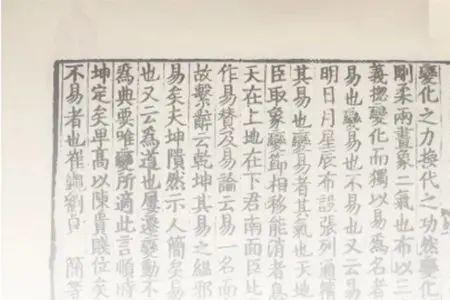 變化之力換代之功然變化
剛柔兩畫象二氣也布以三
義揔變化而獨以易為名者
易也變易也不易也又云易
明日月星辰布設張列通精
其易也變易者其氣也天地
臣取象變節相移能消者息
天在上地在下君南面臣北
作易賛及易論云易一名而
故繫辭云乾坤其易之緼邪
易矣夫坤隤然示人簡矣易
也又云為道也屢遷變動不
為典要唯變所適此言順時
坤定矣卑高以陳貴賤位矣
不易者也崔覲劉貞 簡等